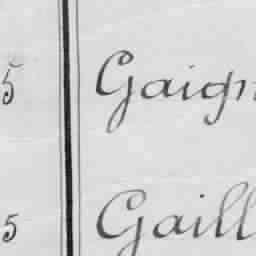 5 Gaign
5 Gaill